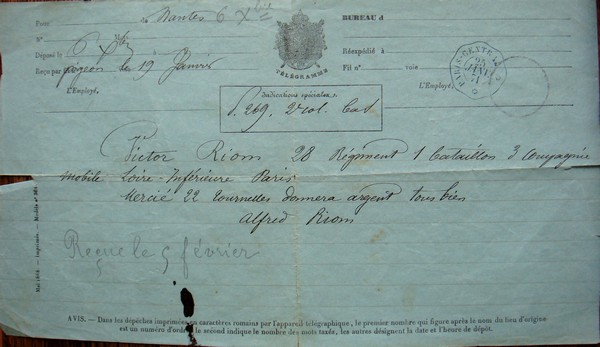 Pour
de Nantes 6 Xbre
BUREAU d
N°
Déposé le 6 Xbre
Réexpédié à
Reçu par pigeon le 19 Janvier
TÉLÉGRAMME
Fil n° voie
L'Employé,
L'Employé,
PARIS-CENTRAL
25
JANV
71
Indications spéciales
P. 269. 2e col. Cat
Vr Victor Riom 28 Régiment 1 Bataillon 3 Compagnie
mobile Loire-Inférieure Paris
Mercié 22 tournelles donnera argent tous bien
Alfred Riom
Reçue le 5 février
Mai 1870. — Imprimerie. — Modèle n°
AVIS. — Dans les dépêches imprimées en caractères romains par l'appareil télégraphique, le premier nombre qui figure après le nom du lieu d'origine
est un numéro d'ordre, le second indique le nombre des mots taxés, les autres désignent la date et l'heure de dépôt.